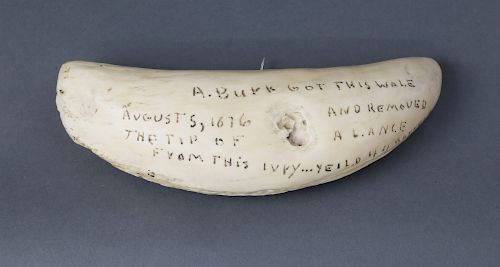 A. BUYK GOT THIS WALE
AUGUST 5, 1676 AND REMOVED
THE TIP OF A LANCE
FYOM THIS IVYY...YEILD